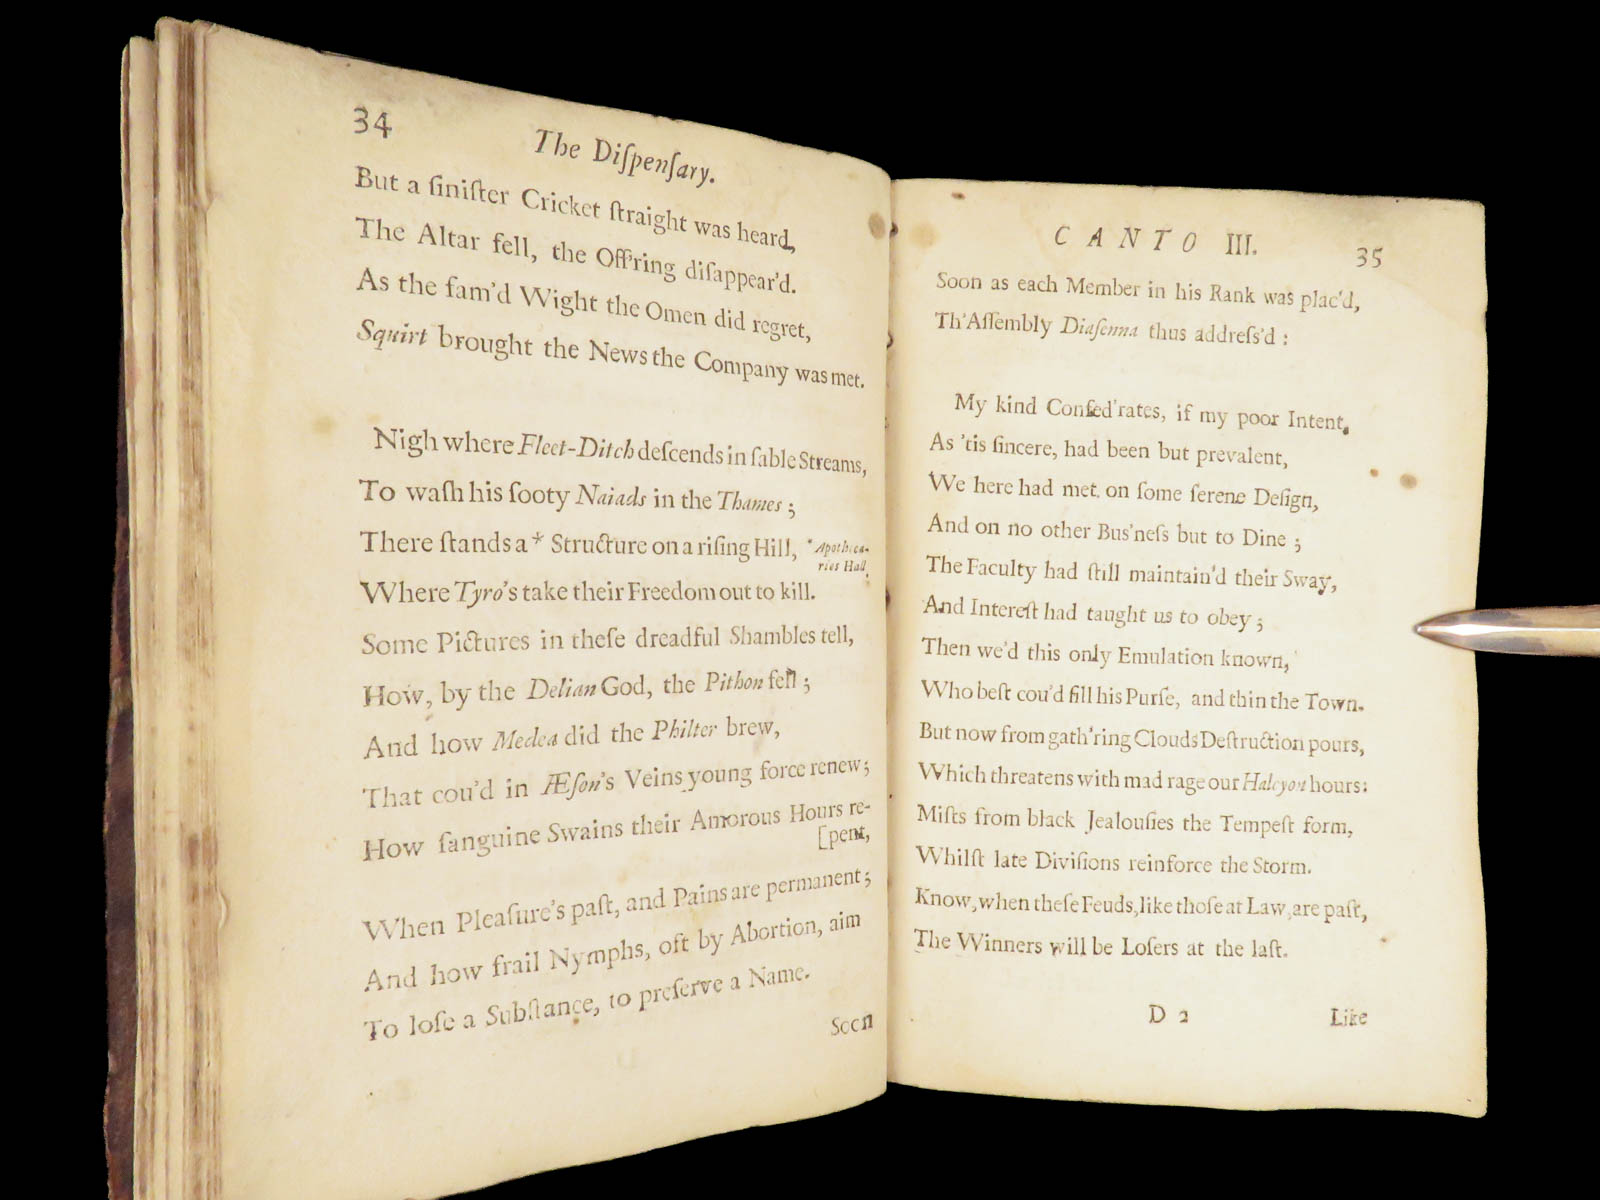 34
The Diſpenſary.
But a ſiniſter Cricket ſtraight was heard,
The Altar fell, the Off'ring diſappear'd.
As the fam'd Wight the Omen did regret,
Squirt brought the News the Company was met.
Nigh where Fleet-Ditch deſcends in ſable Streams,
To waſh his ſooty Naiads in the Thames ;
There ſtands a * Structure on a riſing Hill, * Apotheca-
ries Hall.
Where Tyro's take their Freedom out to kill.
Some Pictures in theſe dreadful Shambles tell,
How, by the Delian God, the Pithon fell ;
And how Medea did the Philter brew,
That cou'd in Æſon's Veins young force renew ;
How ſanguine Swains their Amorous Hours re-
[pent,
When Pleaſure's paſt, and Pains are permanent ;
And how frail Nymphs, oft by Abortion, aim
To loſe a Subſtance, to preſerve a Name.
Soon
CANTO III.
35
Soon as each Member in his Rank was plac'd,
Th'Aſſembly Diaſenna thus addreſs'd :
My kind Confed'rates, if my poor Intent,
As 'tis ſincere, had been but prevalent,
We here had met on ſome ſerene Deſign,
And on no other Bus'neſs but to Dine ;
The Faculty had ſtill maintain'd their Sway,
And Intereſt had taught us to obey ;
Then we'd this only Emulation known,
Who beſt cou'd fill his Purſe, and thin the Town.
But now from gath'ring Clouds Deſtruction pours,
Which threatens with mad rage our Halcyon hours :
Miſts from black Jealouſies the Tempeſt form,
Whilſt late Diviſions reinforce the Storm.
Know, when theſe Feuds, like thoſe at Law, are paſt,
The Winners will be Loſers at the laſt.
D 2
Like